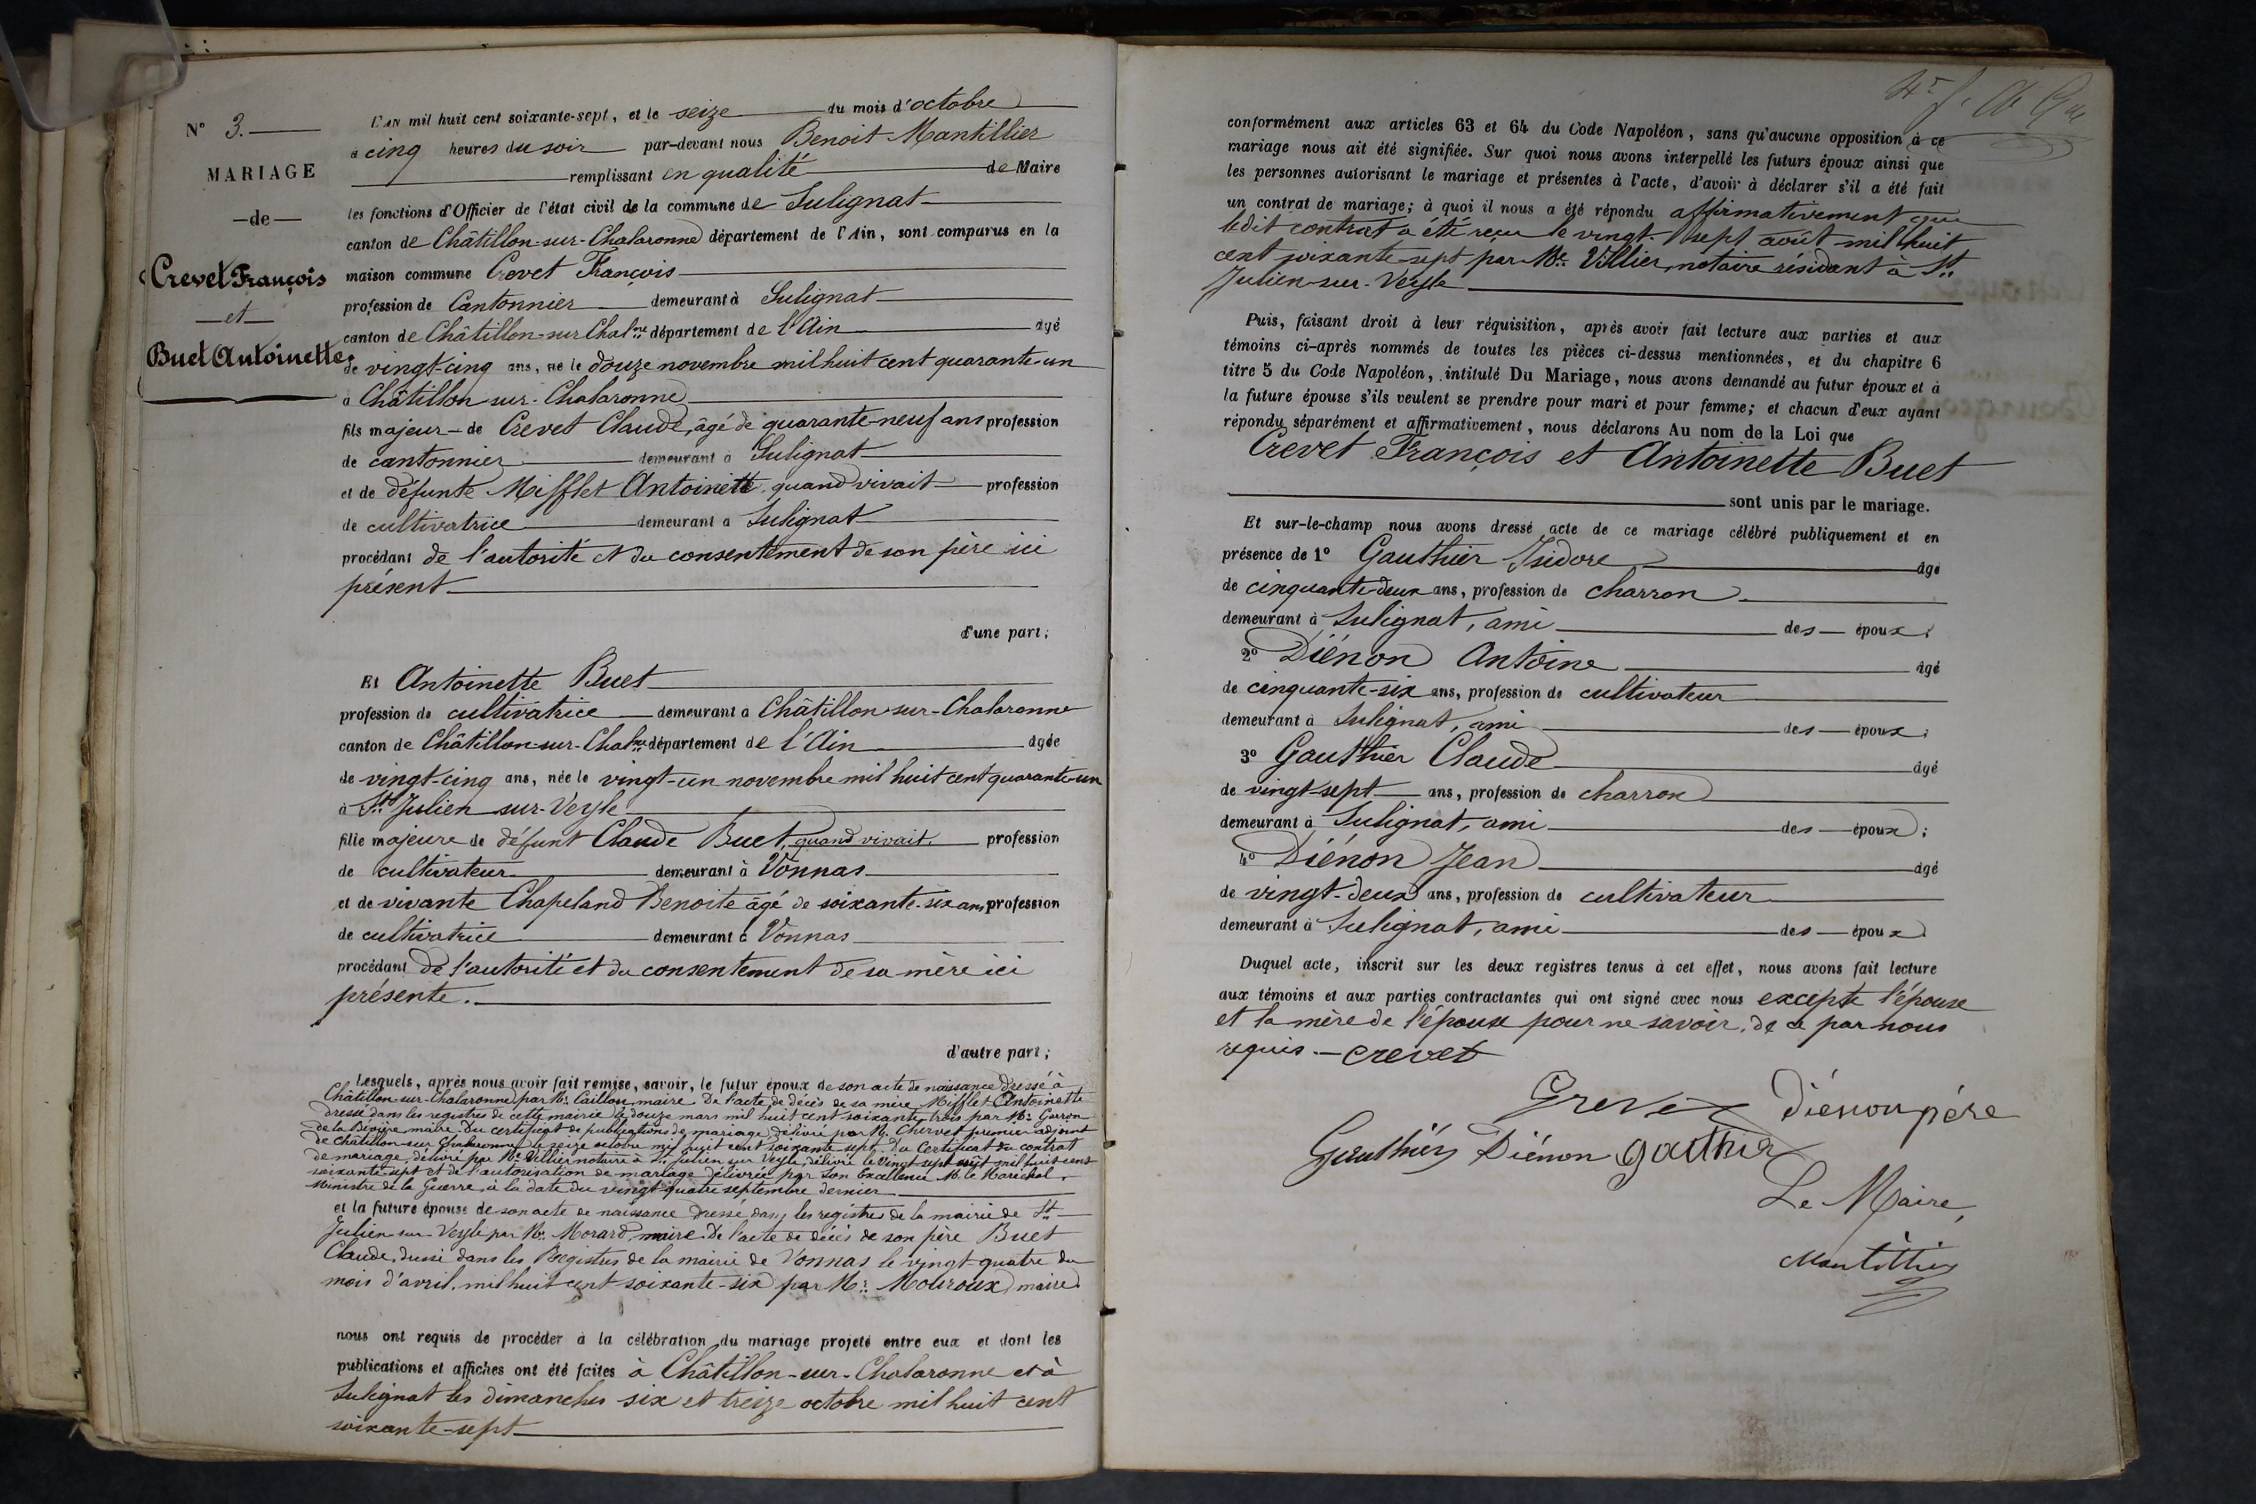 N° 3.
MARIAGE
de
Crevet François
et
Buet Antoinette
L'AN mil huit cent soixante-sept, et le seize du mois d'octobre
à cinq heures du soir par-devant nous Benoit Mantillier
remplissant en qualité de Maire
les fonctions d'Officier de l'état civil de la commune de Sulignat
canton de Châtillon-sur-Chalaronne département de l'Ain, sont comparus en la
maison commune Crevet François
profession de Cantonnier demeurant à Sulignat
canton de Châtillon-sur Chalne département de l'Ain âgé
de vingt-cinq ans, né le douze novembre mil huit cent quarante-un
à Châtillon-sur-Chalaronne
fils majeur de Crevet Claude, âgé de quarante-neuf ans profession
de cantonnier demeurant à Sulignat
et de défunte Mifflet Antoinette quand vivait profession
de cultivatrice demeurant à Sulignat
procédant de l'autorité et du consentement de son père ici
présent
d'une part;
Et Antoinette Buet
profession de cultivatrice demeurant à Châtillon-sur-Chalaronne
canton de Châtillon-sur-Chalne département de l'Ain âgée
de vingt-cinq ans, née le vingt-un novembre mil huit cent quarante-un
à St Julien-sur-Veyle
fille majeure de défunt Claude Buet, quand vivait, profession
de cultivateur demeurant à Vonnas
et de vivante Chapeland Benoite âgé de soixante-six ans profession
de cultivatrice demeurant à Vonnas
procédant de l'autorité et du consentement de sa mère ici
présente.
d'autre part;
Lesquels, après nous avoir fait remise, savoir, le futur époux de son acte de naissance dressé à
Châtillon-sur-Chalaronne par Mr Caillon, maire. De l'acte de décès de sa mère Mifflet Antoinette
dressé dans les registres de cette mairie le douze mars mil huit cent soixante-trois par Mr Garron
de la Bévière maire. Du certificat de publications de mariage délivré par Mr Chervet premier adjoint
de Châtillon-sur Chalaronne le seize octobre mil huit cent soixante-sept. Du Certificat du contrat
de mariage, délivré par Me Villier notaire à St Julien sur Veyle, délivré le vingt-sept août mil huit cent
soixante-sept et de l'autorisation de mariage délivrée par Son Excellence Mr le Maréchal,
Ministre de la Guerre, à la date du vingt-quatre septembre dernier
et la future épouse de son acte de naissance dressé dans les registres de la mairie de St
Julien-sur-Veyle par Mr Morard, maire. De l'acte de décès de son père Buet
Claude, dressé dans les Registres de la mairie de Vonnas le vingt-quatre du
mois d'avril, mil huit cent soixante-six par Mr Mouroux, maire
nous ont requis de procéder à la célébration du mariage projeté entre eux et dont les
publications et affiches ont été faites à Châtillon-sur-Chalaronne et à
Sulignat les dimanches six et treize octobre mil huit cent
soixante-sept
conformément aux articles 63 et 64 du Code Napoléon, sans qu'aucune opposition à ce
mariage nous ait été signifiée. Sur quoi nous avons interpellé les futurs époux ainsi que
les personnes autorisant le mariage et présentes à l'acte, d'avoir à déclarer s'il a été fait
un contrat de mariage; à quoi il nous a été répondu affirmativement que
ledit contrat a été reçu le vingt-sept août mil huit
cent soixante-sept par Me Villier, notaire résidant à St
Julien-sur-Veyle
Puis, faisant droit à leur réquisition, après avoir fait lecture aux parties et aux
témoins ci-après nommés de toutes les pièces ci-dessus mentionnées, et du chapitre 6
titre 5 du Code Napoléon, intitulé Du Mariage, nous avons demandé au futur époux et à
la future épouse s'ils veulent se prendre pour mari et pour femme; et chacun d'eux ayant
répondu séparément et affirmativement, nous déclarons Au nom de la Loi que
Crevet François et Antoinette Buet
sont unis par le mariage.
Et sur-le-champ nous avons dressé acte de ce mariage célébré publiquement et en
présence de 1° Gauthier Isidore âgé
de cinquante-deux ans, profession de charron
demeurant à Sulignat, ami des époux;
2° Diénon Antoine âgé
de cinquante-six ans, profession de cultivateur
demeurant à Sulignat, ami des époux;
3° Gauthier Claude âgé
de vingt-sept ans, profession de charron
demeurant à Sulignat, ami des époux;
4° Diénon Jean âgé
de vingt-deux ans, profession de cultivateur
demeurant à Sulignat, ami des époux
Duquel acte, inscrit sur les deux registres tenus à cet effet, nous avons fait lecture
aux témoins et aux parties contractantes qui ont signé avec nous excepté l'épouse
et la mère de l'épouse pour ne savoir, de ce par nous
requis. — crevet
Grevet Diénon père
Gauthier Diénon gauthier
Le Maire,
Mantillier